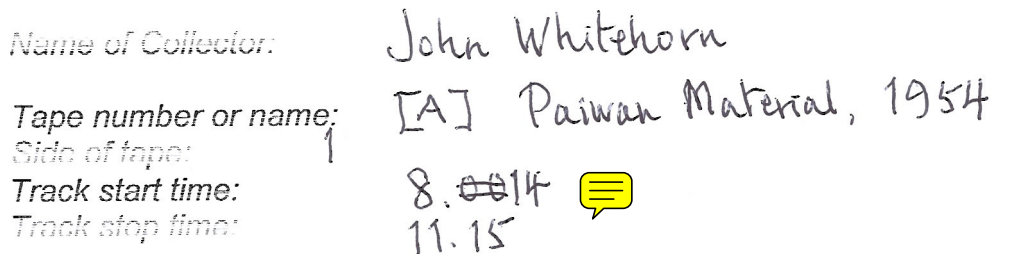 Name of Collector: John Whitehorn
Tape number or name: [A] Paiwan Material, 1954
Side of tape: 1
Track start time: 8.14
Track stop time: 11.15